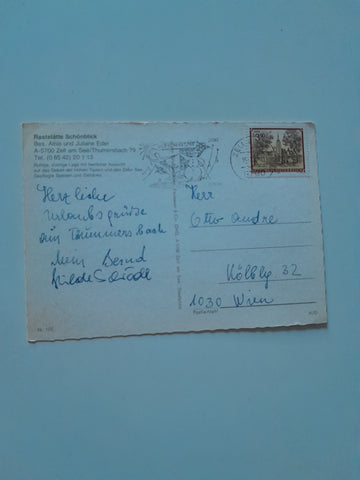 Raststätte Schönblick
Bes. Alois und Juliane Eder
A-5700 Zell am See/Thumersbach 79
Tel. (0 65 42) 20 1 13
Ruhige, sonnige Lage mit herrlicher Aussicht
auf das Gebiet der Hohen Tauern und den Zeller See.
Gepflegte Speisen und Getränke.
Herzliche
Urlaubsgrüße
aus Thummersbach
Bernd
Herr
Otto Andre
Kölblg 32
1030 Wien
Postleitzahl